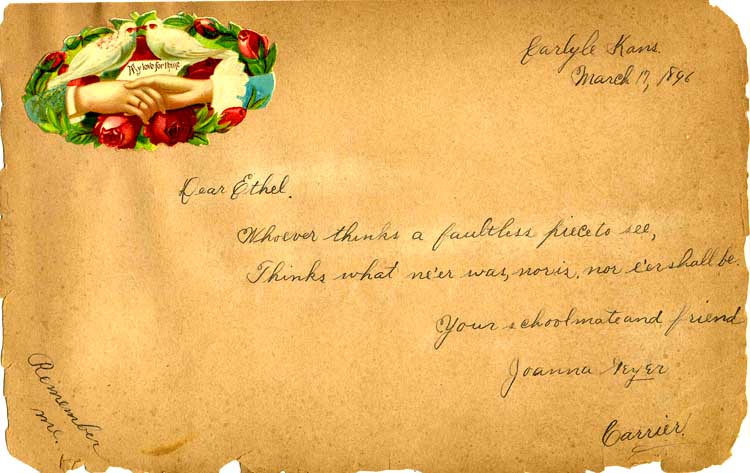 My love for thine
Carlyle Kans.
March 17, 1896
Dear Ethel.
Whoever thinks a faultless piece to see,
Thinks what ne'er was, nor is, nor e'er shall be.
Your schoolmate and friend
Joanna Geyer
Carrier.
Remember
me.